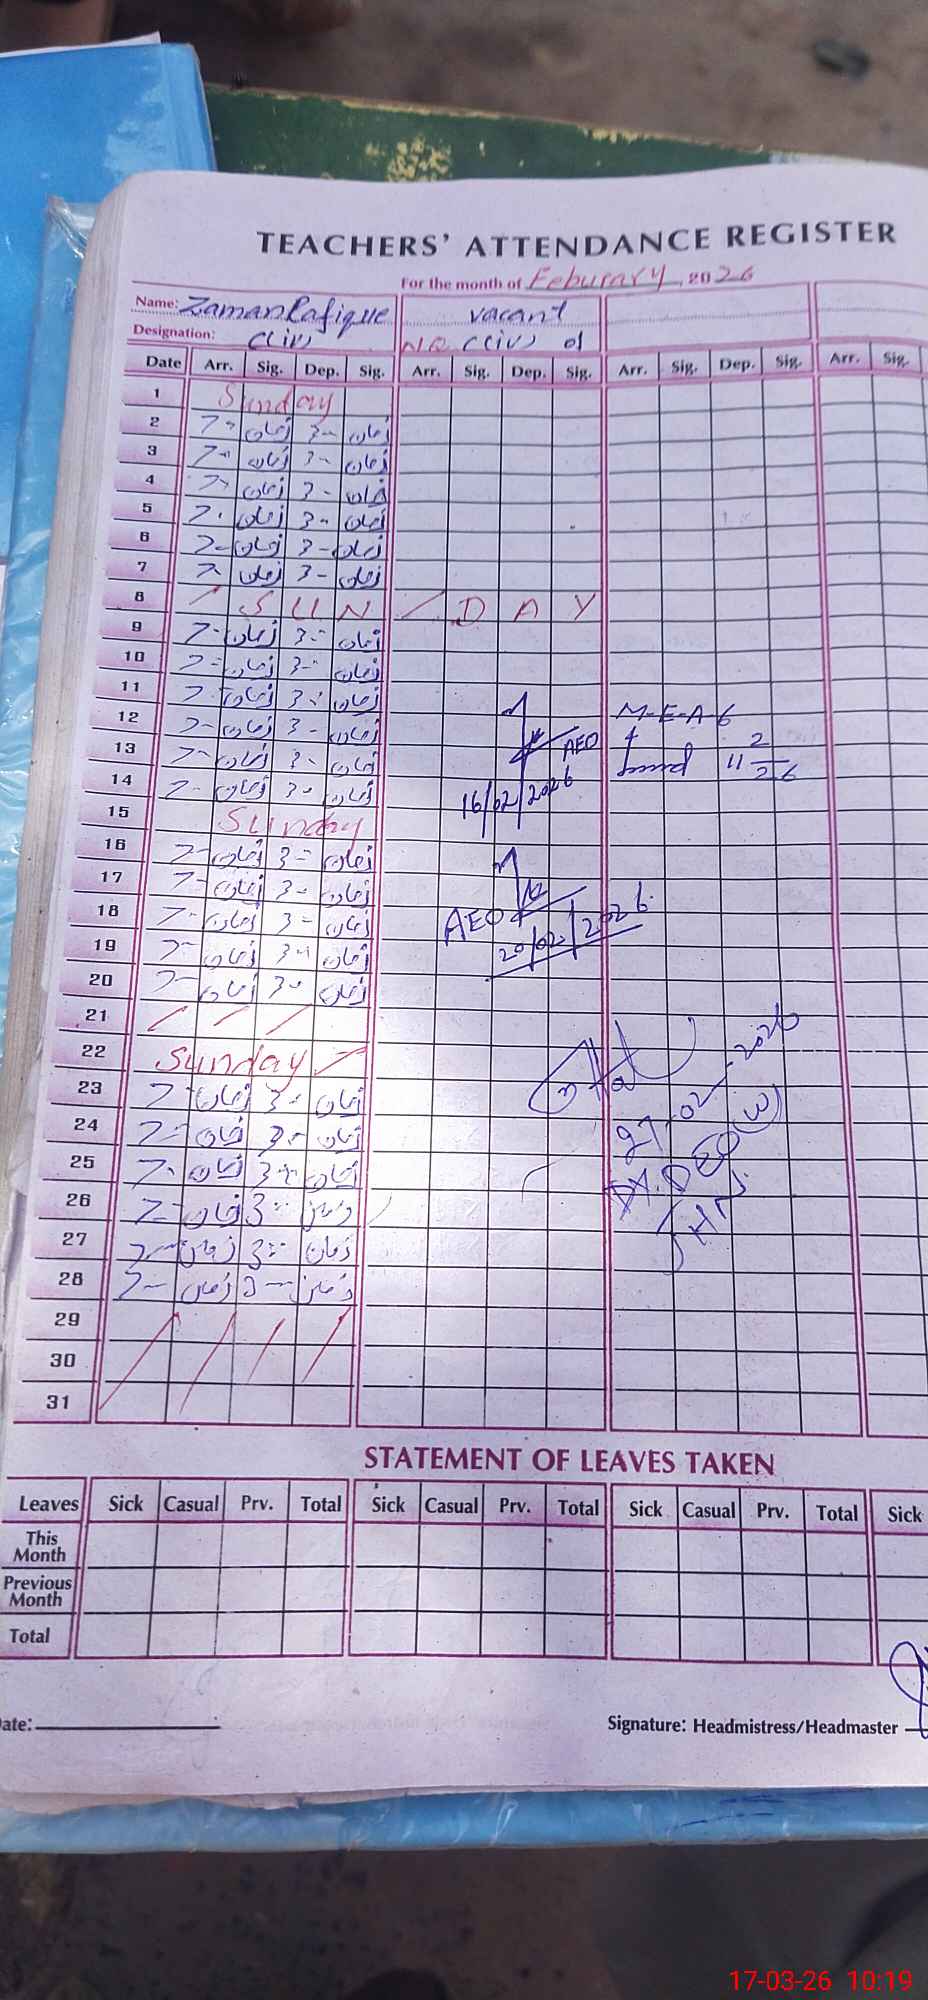 TEACHERS' ATTENDANCE REGISTER
For the month of Feburary, 2026
Name: Zaman Rafique
vacant
Designation: C(iv)
C(iv) 01
Date Arr. Sig. Dep. Sig. Arr. Sig. Dep. Sig. Arr. Sig. Dep. Sig. Arr. Sig.
1 Sunday
2 زمان 3 زمان
3 زمان 3 زمان
4 زمان 3 زمان
5 زمان 3 زمان
6 زمان 3 زمان
7 زمان 3 زمان
8 SUN / DAY
9 زمان 3 زمان
10 زمان 3 زمان
11 زمان 3 زمان
12 زمان 3 زمان M-E-A-6
13 زمان 3 زمان AEO 11 2/26
14 زمان 3 زمان 16/02/2026
15 Sunday
16 زمان 3 زمان
17 زمان 3 زمان
18 زمان 3 زمان AEO
19 زمان 3 زمان 20/02/2026
20 زمان 3 زمان
21
22 Sunday
23 زمان 3 زمان
24 زمان 3 زمان 27-02-2026
25 زمان 3 زمان DY. DEO (W)
26 زمان 3 زمان
27 زمان 3 زمان
28 زمان زمان
29
30
31
STATEMENT OF LEAVES TAKEN
Leaves Sick Casual Prv. Total Sick Casual Prv. Total Sick Casual Prv. Total Sick
This Month
Previous Month
Total
Date:
Signature: Headmistress/Headmaster
17-03-26 10:19